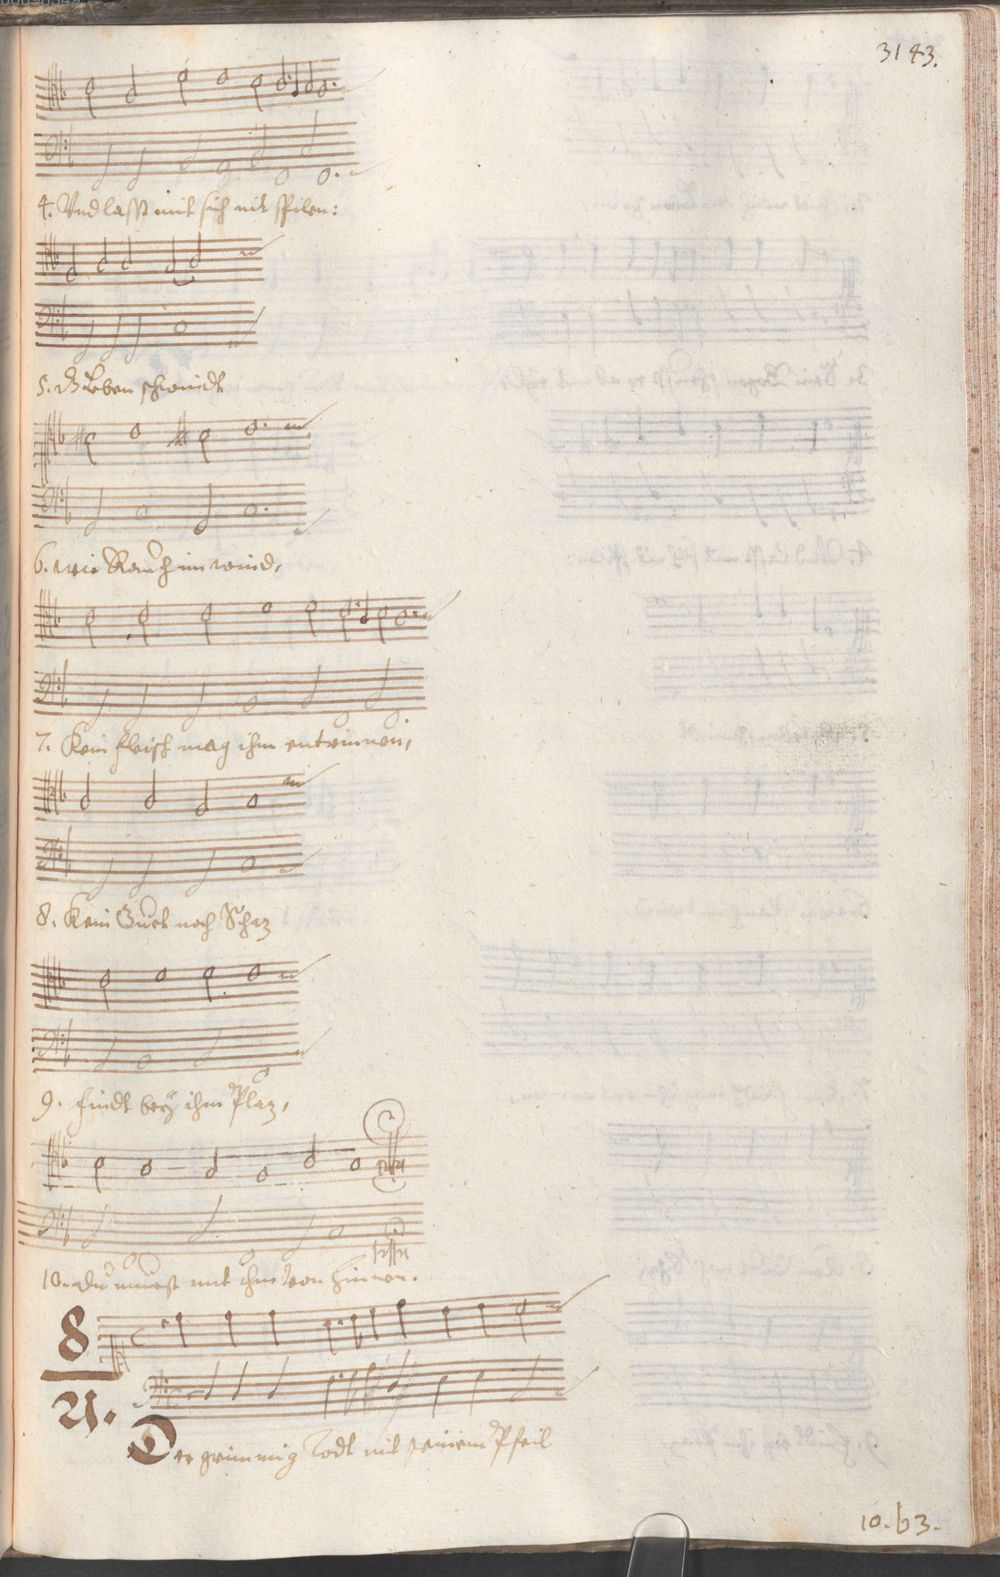 3143.
4. Und lasst mit sich nit spilen:
5. dz Leben schwindt
6. wie Rauch im wind,
7. Kein fleisch mag ihm entrinnen,
8. Kein Guet noch Schaz
9. findt bey ihm Plaz,
10. du muest mit ihm von hinnen.
8
21.
Der grimmig Todt mit seinem Pfeil
10. b3.